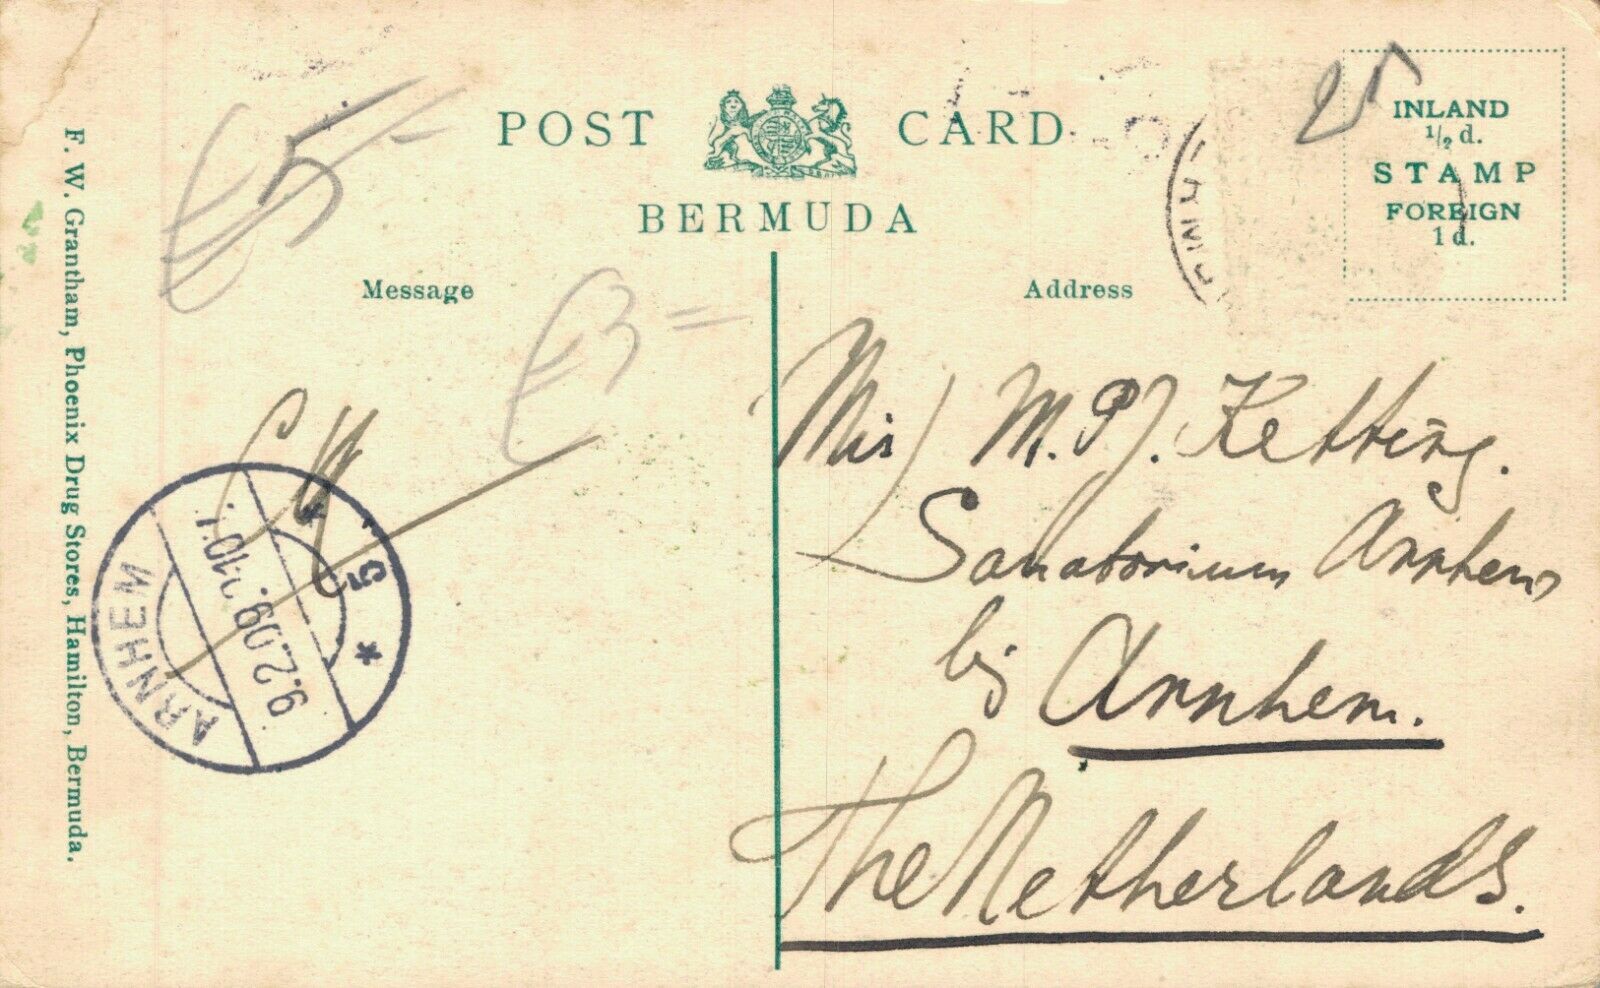 POST CARD
BERMUDA
Message
Address
INLAND
1/2 d.
STAMP
FOREIGN
1 d.
25
£5=
£3=
F. W. Grantham, Phoenix Drug Stores, Hamilton, Bermuda.
ARNHEM
9.2.09. 7-10V.
5
*
Miss M.P.J. Ketting.
Sanatorium Arnhem
bij
Arnhem.
The Netherlands.